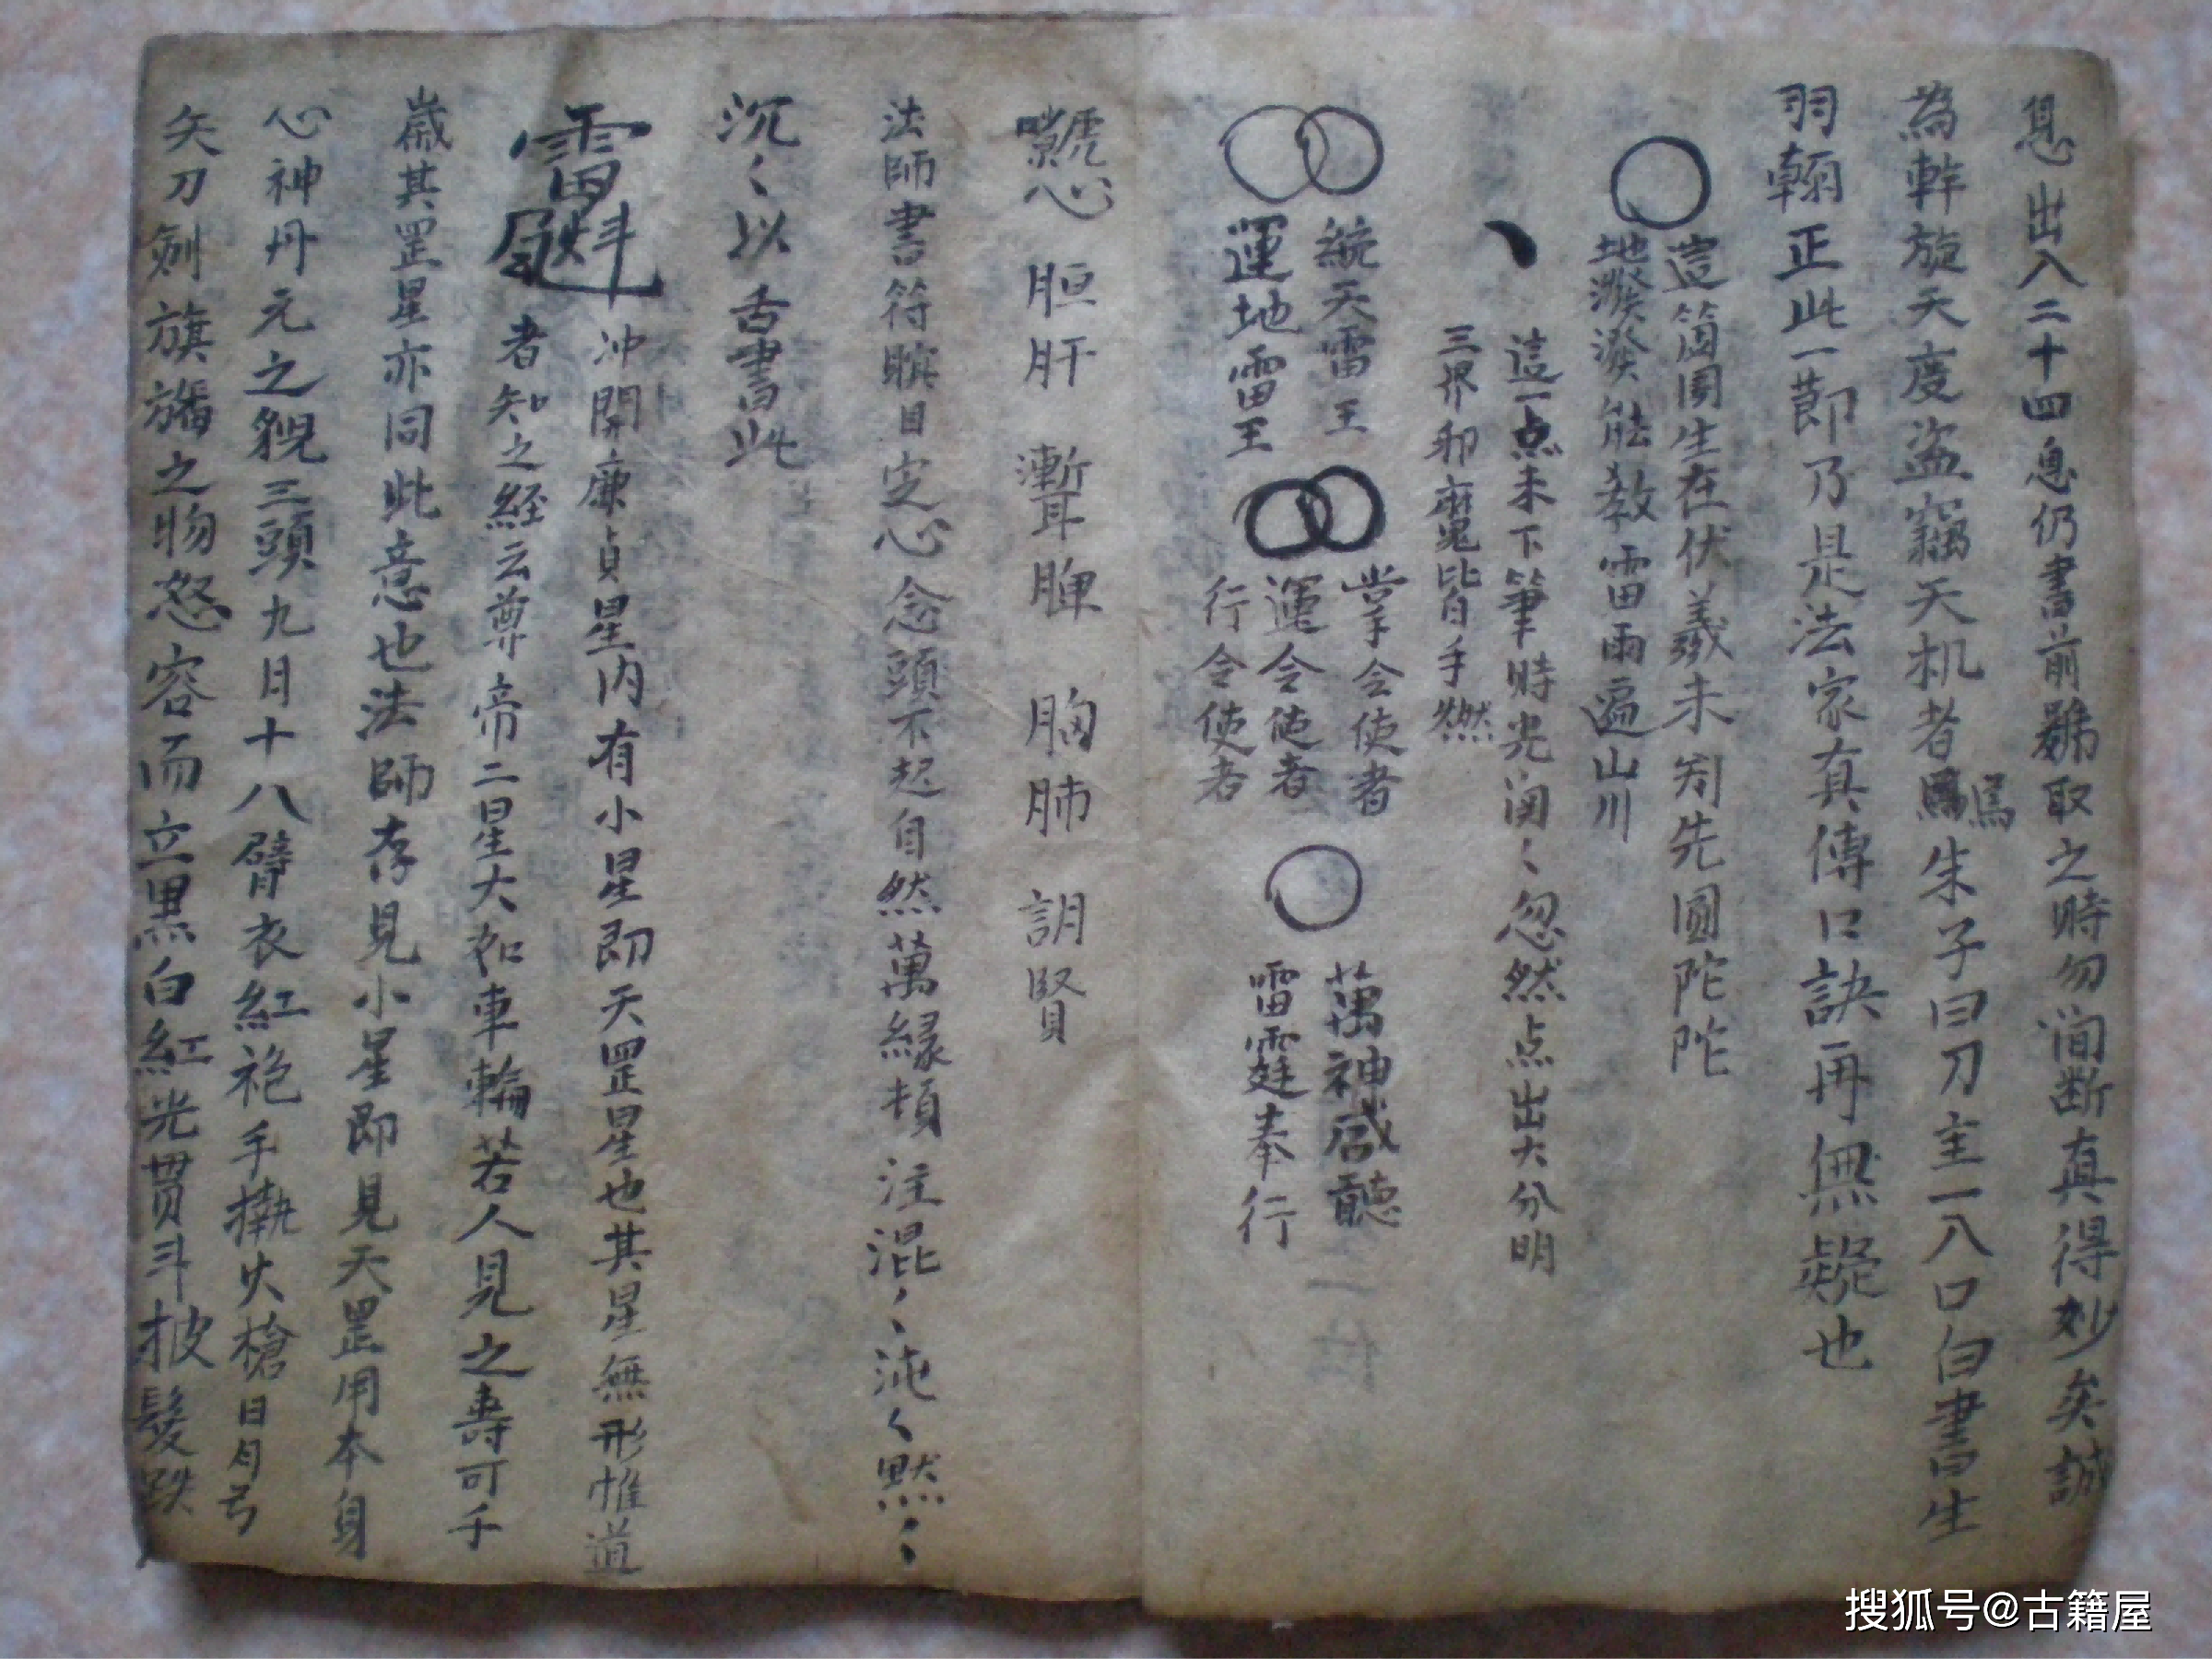 息出入二十四息仍書前號取之時勿間断真得妙矣誠
為斡旋天度盜竊天机者焉朱子曰刀主一八口白書生
羽翰正此一節乃是法家真傳口訣再無疑也
這箇圓生在伏羲未判先圓陀陀
地潑潑能教雷雨遍山川
這一点未下筆時光閃〻忽然点出大分明
三界邪魔皆手燃
統天雷王
運地雷王
掌令使者
運令使者
行令使者
萬神咸聽
雷霆奉行
心 胆肝 脾 胸肺 賢
法師書符瞑目定心念頭不起自然萬緣頓注混〻沌〻黙〻
沉〻以舌書此
冲開廉貞星内有小星即天罡星也其星無形惟道
者知之經云尊帝二星大如車輪若人見之壽可千
歲其罡星亦同此意也法師存見小星即見天罡用本身
心神丹元之貌三頭九目十八臂衣紅袍手執火槍日月弓
矢刀劍旗旛之物怒容而立黑白紅光貫斗披髮跌
搜狐号@古籍屋